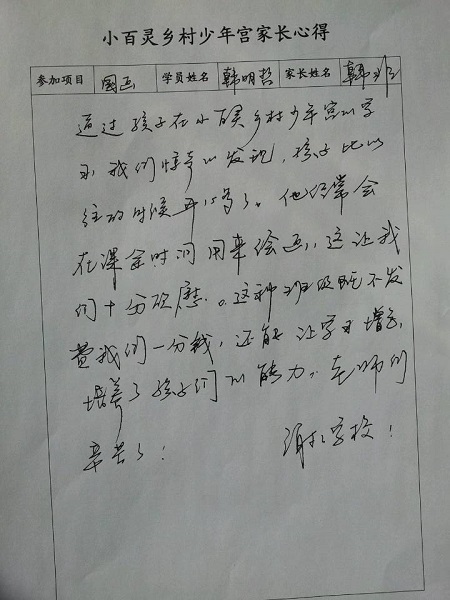 小百灵乡村少年宫家长心得
参加项目 国画 学员姓名 韩明哲 家长姓名 韩
通过孩子在小百灵乡村少年宫的学
习,我们惊奇的发现,孩子比以
往的时候更心。他经常会
在课余时间用来绘画,这让我
们十分欣慰。这种班级既不发
费我们一分钱,还能让学习增
培养了孩子们的能力。老师们
辛苦了! 谢谢学校!